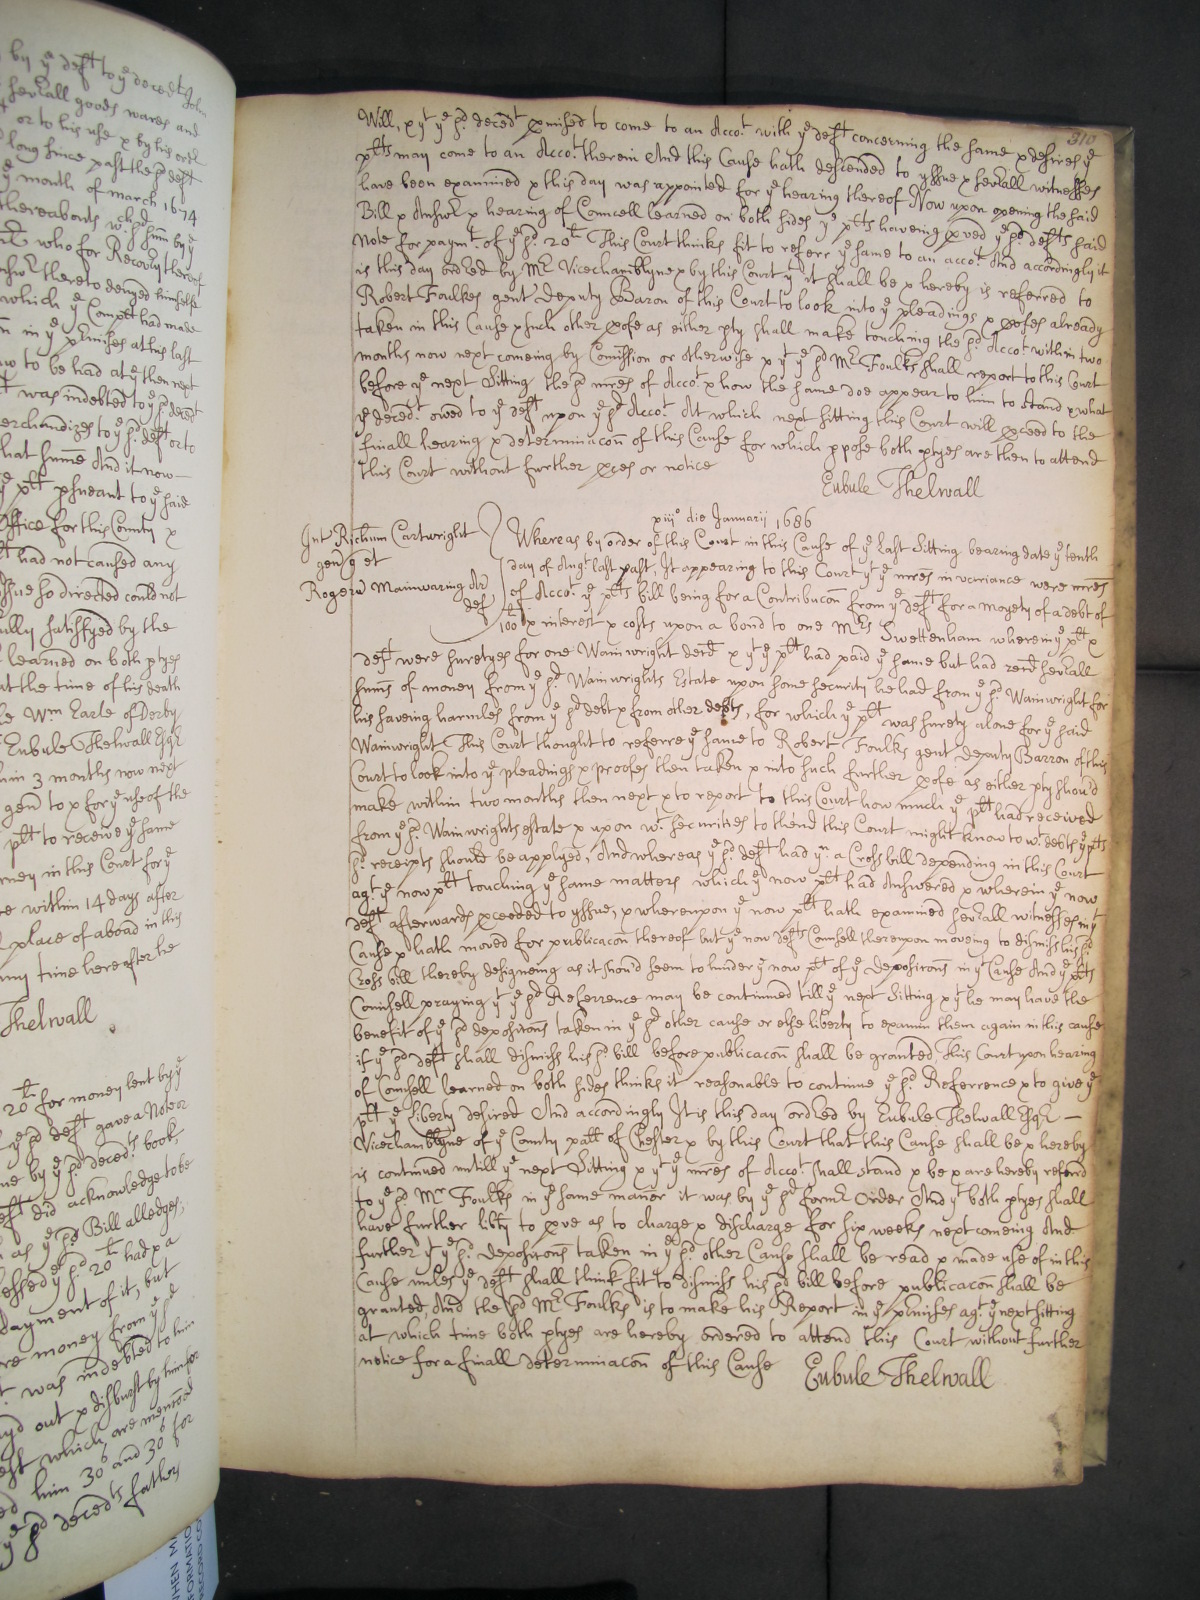 by yᵉ defᵗ to yᵉ decedᵗ John
seṽall goods wares and
or to his use & by his ordʳ
long since past the sᵈ defᵗ
yᵉ month of march 1674
thereabouts
who for Recoṽy thereof
thereto denyed himselfe
which yᵉ Complᵗ had made
in yᵉ p̃misses at his last
to be had at yᵉ then next
was indebted to yᵉ sᵈ decedᵗ
merchandizes to yᵉ sᵈ defᵗ or to
that sum̃e And it now
yᵉ plᵗ p̱suant to yᵉ said
Office for this County &
had not caused any
Issue so directed could not
fully satisfyed by the
learned on both ptyes
at the time of his death
Wm Earle of Derby
Eubule Thelwall Esqʳ
in 3 months now next
gen̄ to & for yᵉ use of the
plᵗ to receive yᵉ same
in this Court for yᵉ
within 14 days after
place of aboad in this
any time hereafter he
Thelwall
20ˡ for money lent by yᵉ
yᵉ sᵈ defᵗ gave a Note or
by yᵉ sᵈ decedᵗˢ book,
did acknowledge to be
as yᵉ sᵈ Bill alledges;
yᵉ sᵈ 20ˡ had & a
payment of it, but
money from yᵉ sᵈ
was indebted to him
out & disburst by him for
which are menc̃oed
him 30ˢ and 30ˢ for
yᵉ sᵈ decedᵗˢ father
310
Will, & yᵗ yᵉ sᵈ decedᵗ p̱mised to come to an Accoᵗ with yᵉ defᵗ concerning the same & desires yᵉ
plᵗˢ may come to an Accoᵗ therein And this Cause hath descended to yssue & seṽall witnesses
have been examined & this day was appointed for yᵉ hearing thereof Now upon opening the said
Bill & Answʳ & hearing of Councell learned on both sides yᵉ plᵗˢ haveing p̱ved yᵉ sᵈ defᵗˢ said
Note for paymᵗ of yᵉ sᵈ 20ˡ This Court thinks fit to referr yᵉ same to an accoᵗ And accordingly it
is this day ordered by Mʳ Vicechamblyne & by this Court yᵗ it shall be & hereby is referred to
Robert Foulkes gent Deputy Baron of this Court to look into yᵉ pleadings & p̱ofes already
taken in this Cause & such other p̱ofe as either pty shall make touching the sᵈ Accoᵗ within two
months now next comeing by Com̃ission or otherwise & yᵗ yᵉ sᵈ Mʳ Foulks shall report to this Court
before yᵉ next Sitting the sᵈ m̃res of Accoᵗ & how the same doe appear to him to stand & what
yᵉ decedᵗ owed to yᵉ defᵗ upon yᵉ sᵈ Accoᵗ At which next sitting this Court will p̱ceed to the
finall hearing & determinac̃on of this Cause for which p̱pose both ptyes are then to attend
this Court without further p̱ces or notice
Eubule Thelwall
xiiiº die Januarij 1686
Int Ric̃hum Cartwright
gen̄ q̱ et
Rogerū Mainwaring Ar̄
def
Whereas by order of this Court in this Cause of yᵉ last Sitting bearing date yᵉ tenth
day of Augᵗ last past, It appearing to this Court yᵗ yᵉ m̃res in variance were m̃res
of Accoᵗ yᵉ plᵗˢ bill being for a Contribuc̃on from yᵉ defᵗ for a moyety of a debt of
100ˡ & interest & costs upon a bond to one Mʳˢ Swettenham wherein yᵉ plᵗ &
defᵗ were suretyes for one Wainwright decd̄ & yᵗ yᵉ plᵗ had paid yᵉ same but had recd̄ seṽall
sum̄s of money from yᵉ sᵈ Wainwrights Estate upon some security he had from yᵉ sᵈ Wainwright for
his saveing harmles from yᵉ sᵈ debt & from other debts, for which yᵉ plᵗ was surety alone for yᵉ said
Wainwright This Court thought to referre yᵉ same to Robert Foulks gent Deputy Barron of this
Court to look into yᵉ pleadings & proofes then taken & into such further p̱ofe as either pty should
make within two months then next & to report to this Court how much yᵉ plᵗ had received
from yᵉ sᵈ Wainwrights estate & upon wᵗ securities to thend this Court might know to wᵗ debts yᵉ plᵗˢ
sᵈ receipts should be applyed, And whereas yᵉ sᵈ defᵗ had yⁿ a Cross bill depending in this Court
agᵗ yᵉ now plᵗ touching yᵉ same matters which yᵉ now plᵗ had Answered & wherein yᵉ now
defᵗ afterwards p̱ceeded to yssue, & whereupon yᵉ now plᵗ hath examined seṽall witnesses in yᵗ
Cause & hath moved for publicac̃on thereof but yᵉ now defᵗˢ Councell thereupon moveing to dismiss his sᵈ
Cross bill thereby designeing as it should seem to hinder yᵉ now plᵗ of yᵉ Deposic̃ons in yᵗ Cause And yᵉ plᵗˢ
Councell praying yᵗ yᵉ sᵈ Referrence may be continued till yᵉ next Sitting & yᵗ he may have the
benefit of yᵉ sᵈ deposic̃ons taken in yᵉ sᵈ other cause or else liberty to examin them again in this cause
if yᵉ sᵈ defᵗ shall dismiss his sᵈ bill before publicac̃on shall be granted, This Court upon hearing
of Councell learned on both sides thinks it reasonable to continue yᵉ sᵈ Referrence & to give yᵉ
plᵗ yᵉ liberty desired And accordingly It is this day ordered by Eubule Thelwall Esqʳ —
Vicechamblyne of yᵉ County pallᵗ of Chester & by this Court that this Cause shall be & hereby
is continued untill yᵉ next Sitting & yᵗ yᵉ m̃res of Accoᵗ shall stand & be & are hereby referrd
to yᵉ sᵈ Mʳ Foulks in yᵉ same man̄er it was by yᵉ sᵈ formʳ Order And yᵗ both ptyes shall
have further lib̃ty to p̱ve as to charge & discharge for six weeks next comeing And
further yᵗ yᵉ sᵈ Deposic̃ons taken in yᵉ sᵈ other Cause shall be read & made use of in this
Cause unles yᵉ defᵗ shall think fit to dismiss his sᵈ bill before publicac̃on shall be
granted, And the sᵈ Mʳ Foulks is to make his Report in yᵉ p̃misses agᵗ yᵉ next sitting
at which time both ptyes are hereby ordered to attend this Court without further
notice for a finall determinac̃on of this Cause Eubule Thelwall